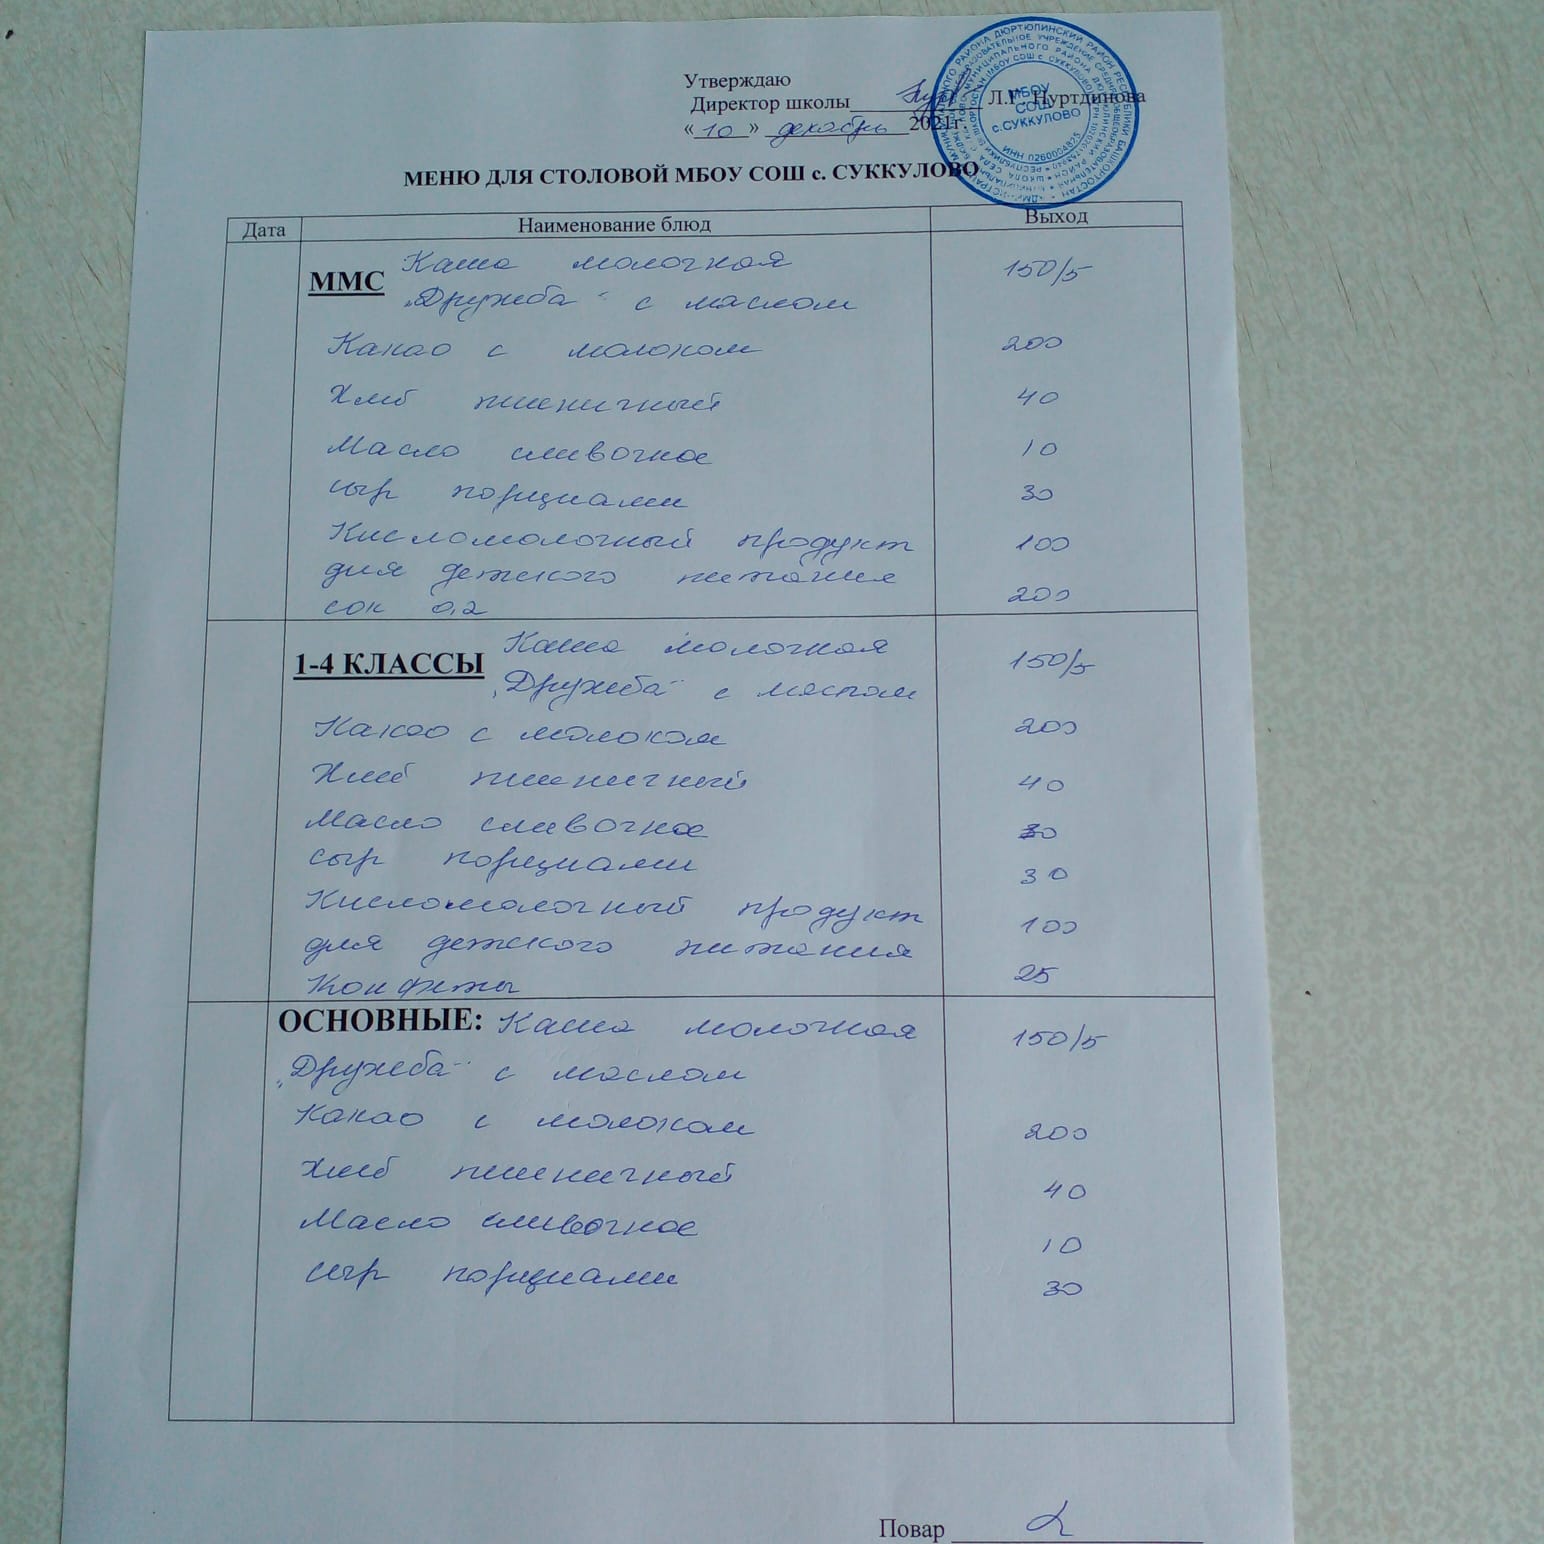 Утверждаю
Директор школы Л.Г. Нуртдинова
«10» декабрь 2021г.
МБОУ
СОШ
с.СУККУЛОВО
ИНН 0260004825
МЕНЮ ДЛЯ СТОЛОВОЙ МБОУ СОШ с. СУККУЛОВО
Дата Наименование блюд Выход
ММС Каша молочная 150/5
„Дружба“ с маслом
Какао с молоком 200
Хлеб пшеничный 40
Масло сливочное 10
сыр порциами 30
Кисломолочный продукт 100
для детского питания
сок 0,2 200
1-4 КЛАССЫ Каша молочная 150/5
„Дружба“ с маслом
Какао с молоком 200
Хлеб пшеничный 40
Масло сливочное
сыр порциами 30
Кисломолочный продукт 100
для детского питания
Конфеты 25
ОСНОВНЫЕ: Каша молочная 150/5
„Дружба“ с маслом
Какао с молоком 200
Хлеб пшеничный 40
Масло сливочное 10
сыр порциами 30
Повар